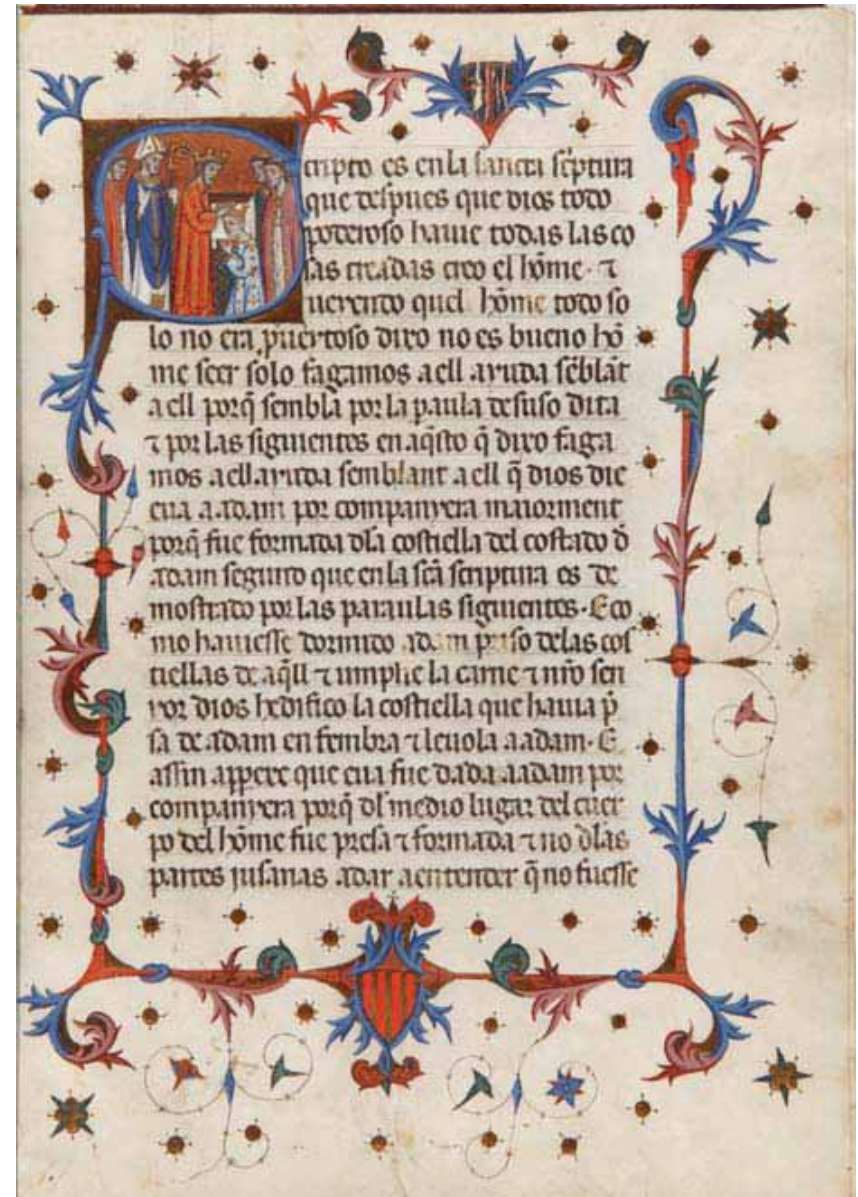 cripto es en la sancta sc̃ptura
que despues que dios todo
poderoso hauie todas las co
sas creadas creo el hõme · ⁊
ueyendo quel hõme todo so
lo no era puertoso dixo no es bueno hõ
me seer solo fagamos a ell ayuda sẽblãt
a ell porq̃ sembla por la paula de suso dita
⁊ por las siguientes en aq̃sto q̃ dixo faga
mos a ell ayuda semblant a ell q̃ dios die
eua a adam por companyera maiorment
porq̃ fue formada dla costiella del costado d̃
adam segunt que en la sc̃a scriptura es de
mostrado por las paraulas siguientes · E co
mo hauiesse dormido adam priso de las cos
tiellas de aq̃ll ⁊ umplie la carne ⁊ nr̃o sen
yor dios hedifico la costiella que hauia p̃
sa de adam en fembra ⁊ leuola a adam · E
assin appere que eua fue dada a adam por
companyera porq̃ dl medio lugar del cuer
po del hõme fue presa ⁊ formada ⁊ no dlas
partes jusanas a dar a entender q̃ no fuesse